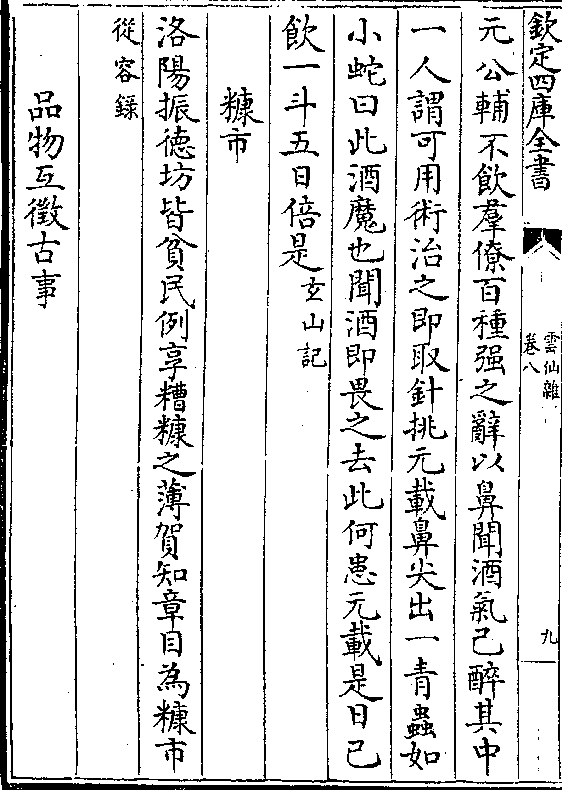 欽定四庫全書
雲仙雜
卷八
九
元公輔不飲羣僚百種强之辭以鼻聞酒氣已醉其中
一人謂可用術治之即取針挑元載鼻尖出一青蟲如
小蛇曰此酒魔也聞酒即畏之去此何患元載是日已
飲一斗五日倍是玄山記
糠市
洛陽振德坊皆貧民例享糟糠之薄賀知章目為糠市
從容錄
品物互徵古事